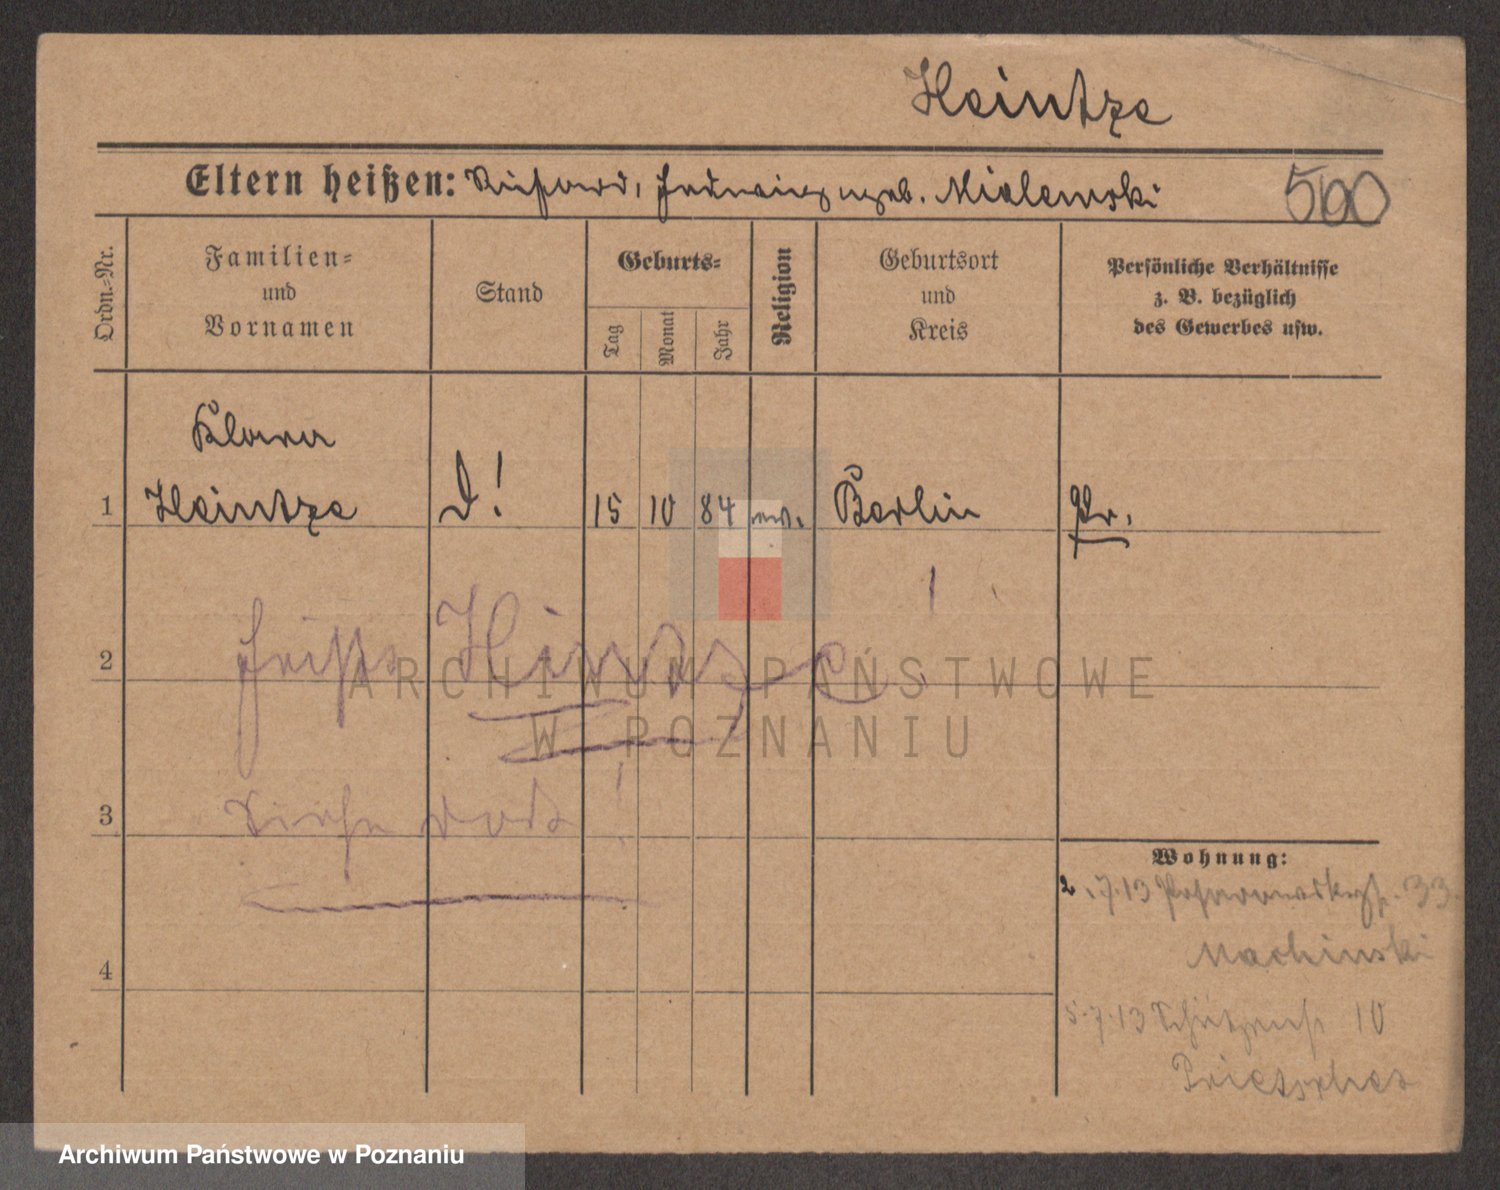 Heintze
Eltern heißen: Richard, Hedwig geb. Mialewski
500
Ordn.-Nr.
Familien-
und
Vornamen
Stand
Geburts-
Tag
Monat
Jahr
Religion
Geburtsort
und
Kreis
Persönliche Verhältnisse
z. B. bezüglich
des Gewerbes usw.
Klara
1 Heintze D! 15 10 84 Berlin Pr.
2 heißt Hintze!
3 Siehe dort!
4
Wohnung:
2.7.13 33
Machinski
5.7.13 Schützenstr 10
ARCHIWUM PAŃSTWOWE
W POZNANIU
Archiwum Państwowe w Poznaniu